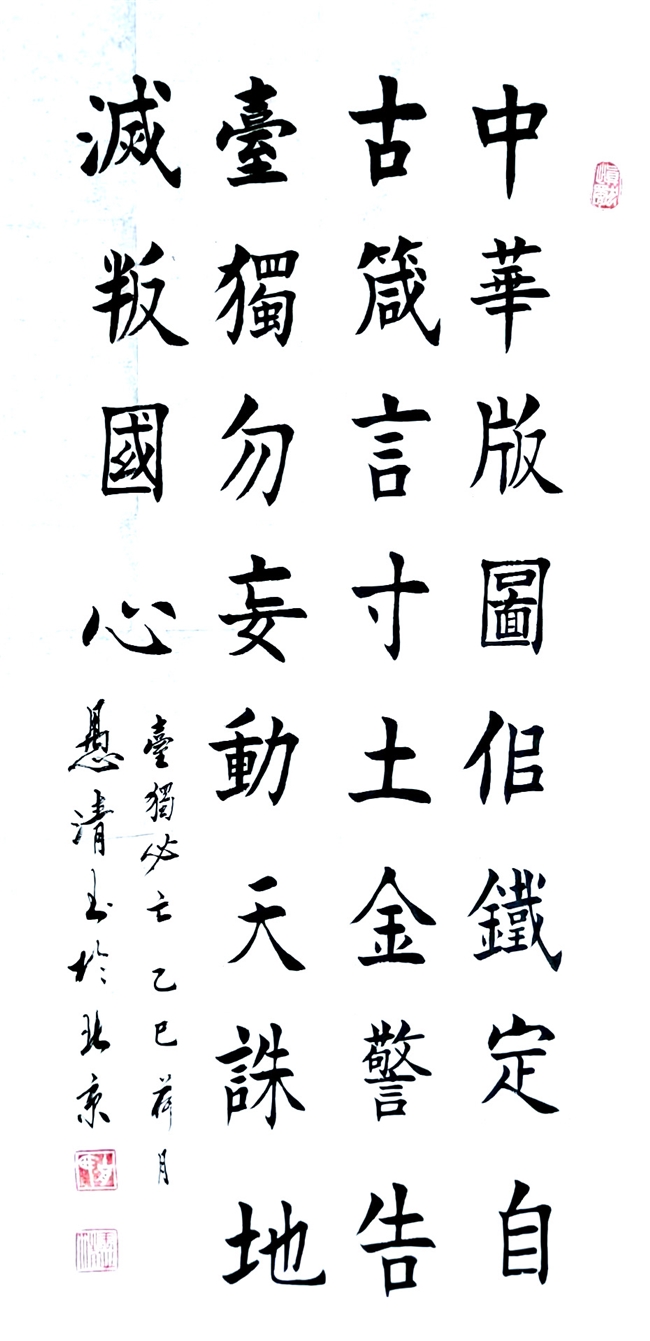 中華版圖侣鐵定自
古箴言寸土金警告
臺獨勿妄動天誅地
滅叛國心
臺獨必亡 乙巳荷月
愚清书於北京